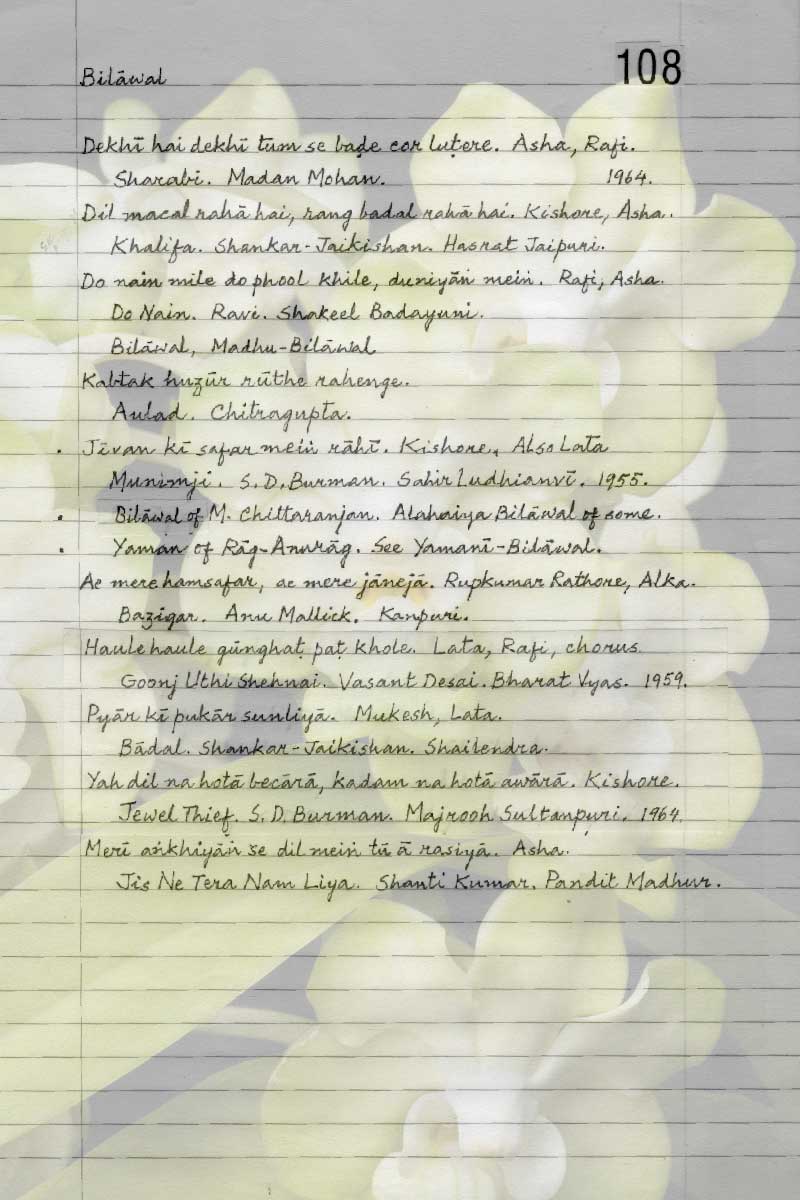 Bilāwal
108
Dekhī hai dekhī tum se baḍe cor luṭere. Asha, Rafi.
Sharabi. Madan Mohan. 1964.
Dil macal rahā hai, rang badal rahā hai. Kishore, Asha.
Khalifa. Shankar-Jaikishan. Hasrat Jaipuri.
Do nain mile do phool khile, duniyāṅ meiṅ. Rafi, Asha.
Do Nain. Ravi. Shakeel Badayuni.
Bilāwal, Madhu-Bilāwal
Kabtak huzūr rūthe rahenge.
Aulad. Chitragupta.
. Jīvan kī safar meiṅ rāhī. Kishore, Also Lata
Munimji. S. D. Burman. Sahir Ludhianvī. 1955.
. Bilāwal of M. Chittaranjan. Alahaiya Bilāwal of some.
. Yaman of Rāg-Anurāg. See Yamanī-Bilāwal.
Ae mere hamsafar, ae mere jānejā. Rupkumar Rathore, Alka.
Bazigar. Anu Mallick. Kanpuri.
Haule haule gūnghaṭ paṭ khole. Lata, Rafi, chorus.
Goonj Uthi Shehnai. Vasant Desai. Bharat Vyas. 1959.
Pyār kī pukār sunliyā. Mukesh, Lata.
Bādal. Shankar-Jaikishan. Shailendra.
Yah dil na hotā becārā, kadam na hotā awārā. Kishore.
Jewel Thief. S. D. Burman. Majrooh Sultanpuri. 1964.
Merī aṅkhiyāṅ se dil meiṅ tū ā rasiyā. Asha.
Jis Ne Tera Nam Liya. Shanti Kumar. Pandit Madhur.